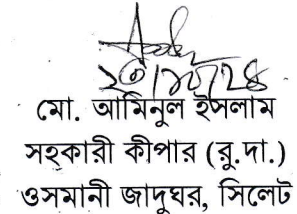 মো. আমিনুল ইসলাম
সহকারী কীপার (রু.দা.)
ওসমানী জাদুঘর, সিলেট